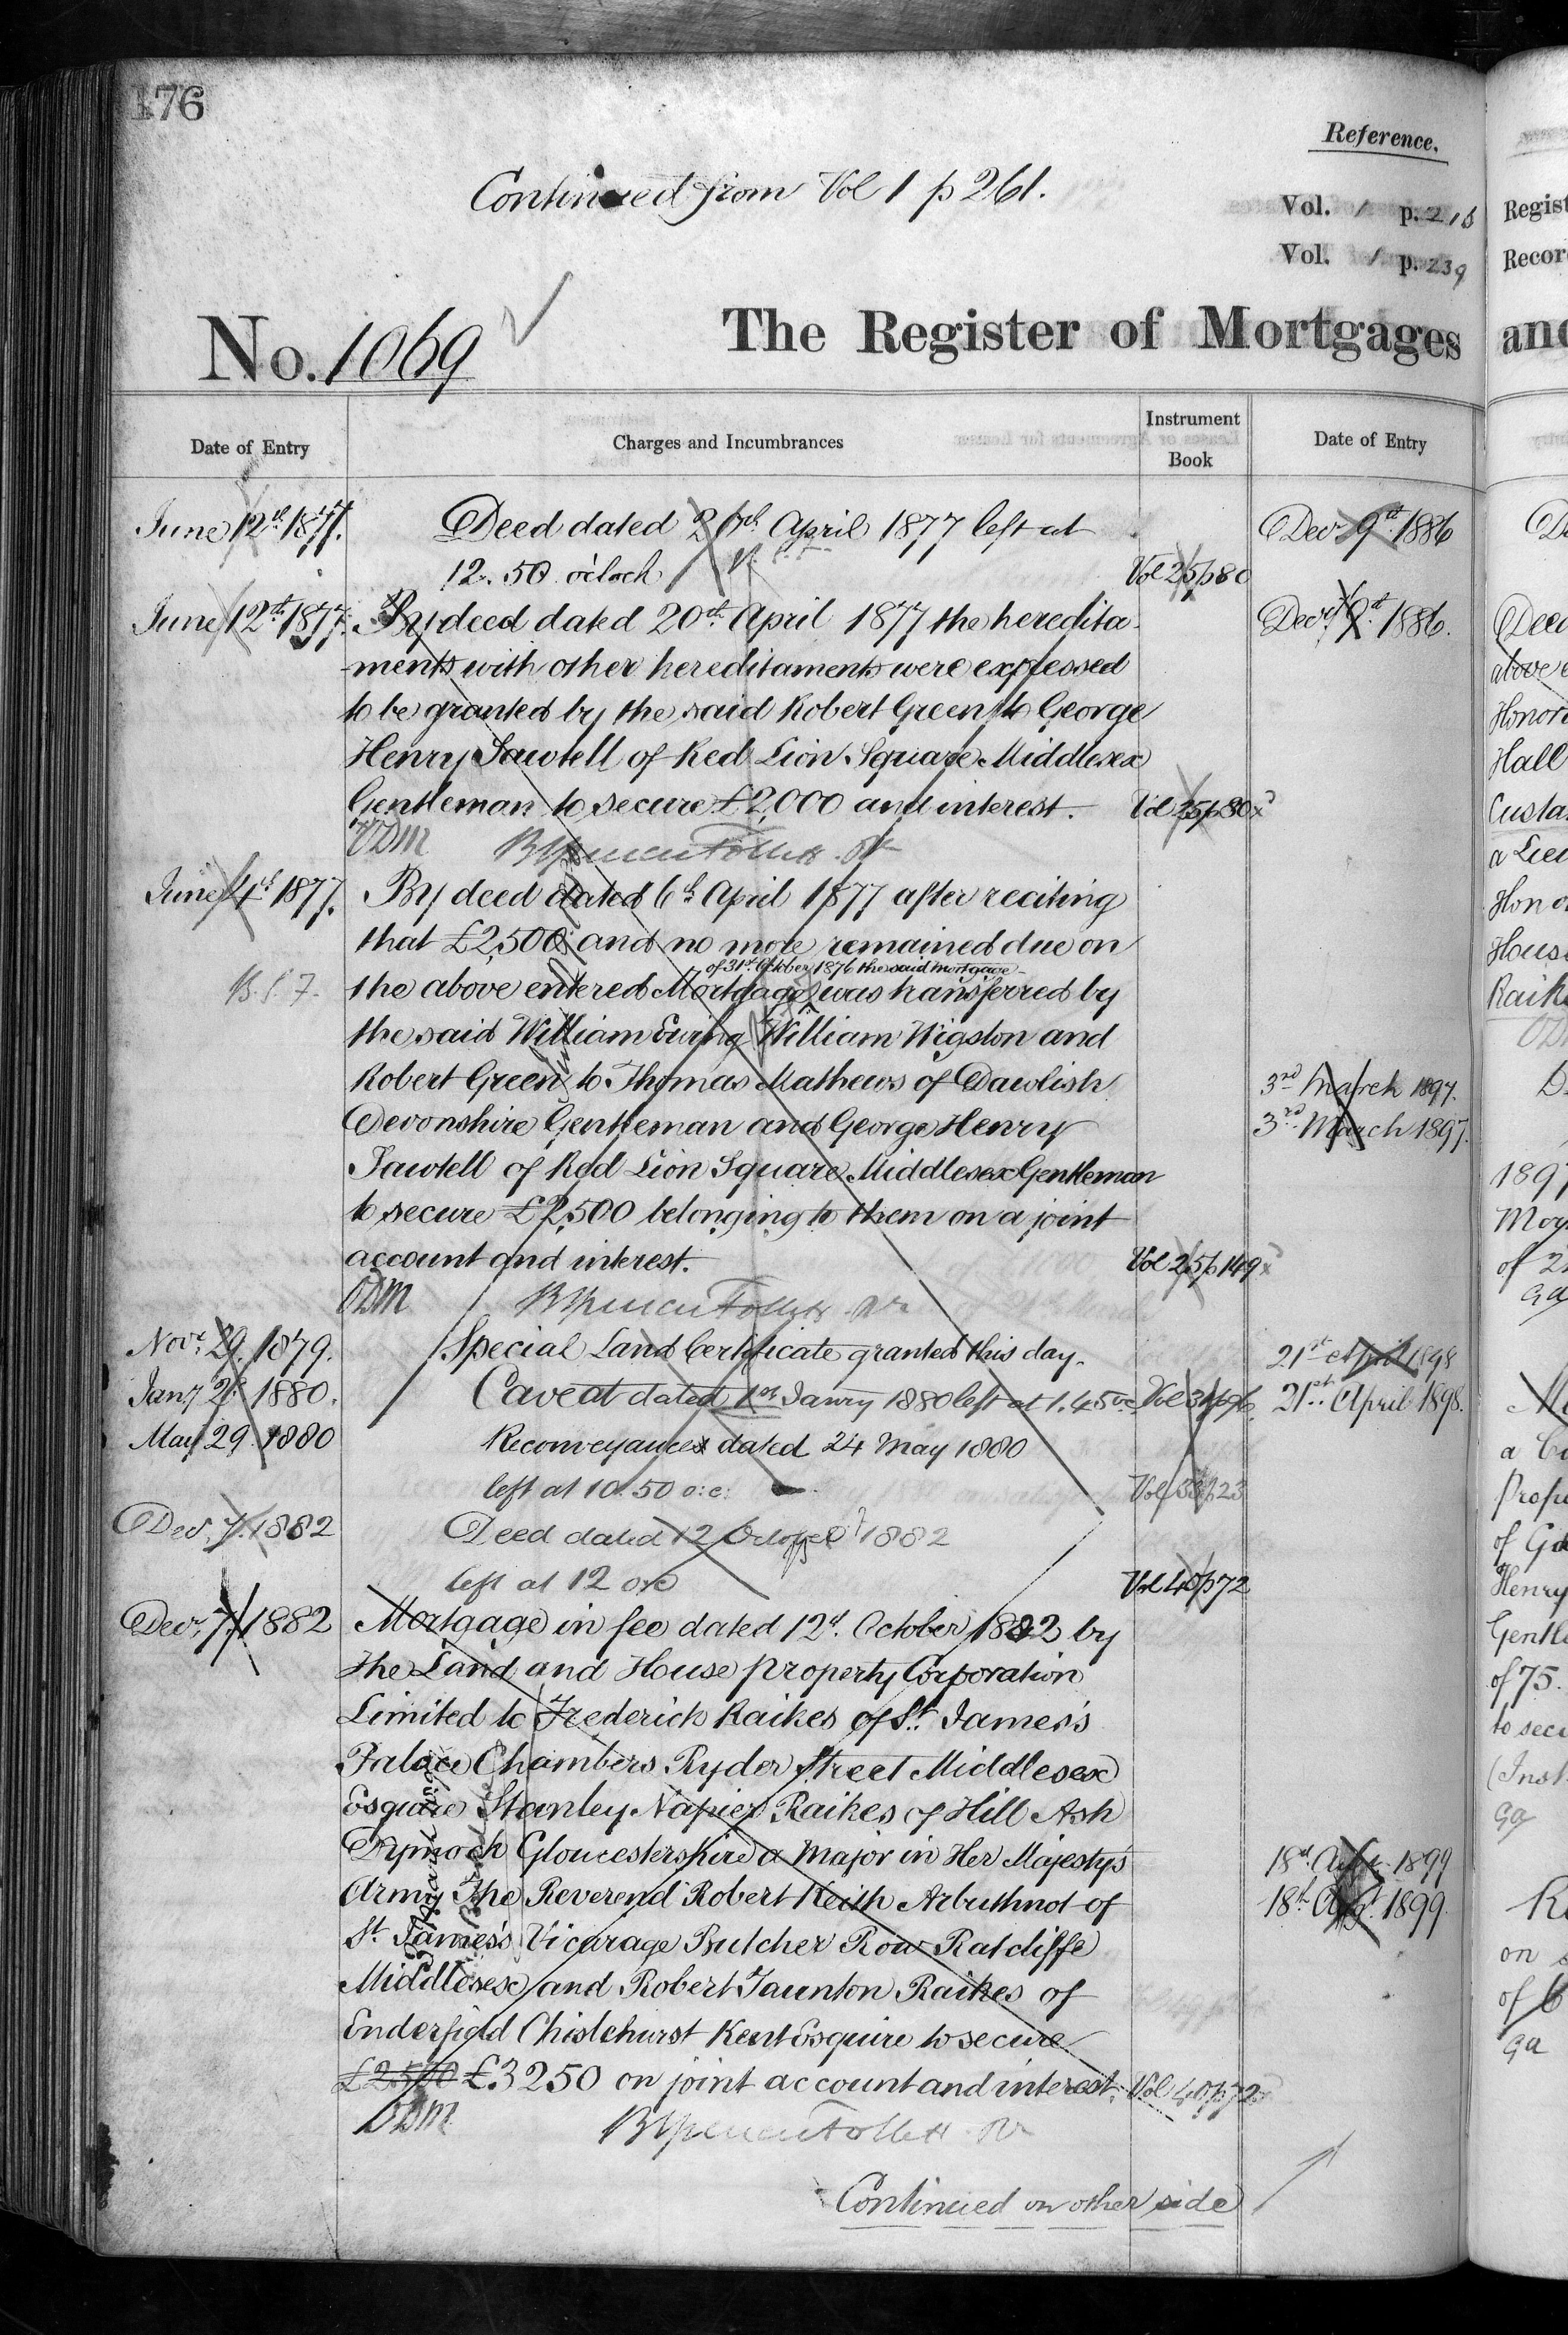 176
Reference.
Continued from Vol 1 p 261.
Vol. 1 p. 215
Vol. 1 p. 239
No. 1069
The Register of Mortgages
Date of Entry
Charges and Incumbrances
Instrument Book
Date of Entry
June 12th 1877. Deed dated April 1877 left at
12. 50 o'clock Vol 25 p 80
June 12th 1877. By deed dated 20th April 1877 the heredita-
-ments with other hereditaments were expressed
to be granted by the said Robert Green to George
Henry Sawtell of Red Lion Square Middlesex
Gentleman to secure £2,000 and interest. Vol 25 p 80
ODM
June 1877. By deed dated 6th April 1877 after reciting
that £2,500 and no more remained due on
of 31st October 1876 the said mortgage
B.S.F. the above entered Mortgage was transferred by
the said William Ewing William Wigston and
Robert Green to Thomas Mathews of Dawlish
Devonshire Gentleman and George Henry
Sawtell of Red Lion Square Middlesex Gentleman
to secure £2,500 belonging to them on a joint
account and interest. Vol 25 p 149
ODM
Novr. 29. 1879. Special Land Certificate granted this day.
Jany 2d 1880. Caveat dated 1st Janry 1880 left at 1.45 oc. Vol 31
May 29. 1880 Reconveyance dated 24 May 1880
left at 10.50 o:c: Vol 33 p 23
Decr. 7. 1882 Deed dated 12 October 1882
left at 12 o'c Vol 40 p 72
Decr. 7. 1882 Mortgage in fee dated 12th October 1882 by
the Land and House property Corporation
Limited to Frederick Raikes of St. James's
Palace Chambers Ryder Street Middlesex
Esquire Stanley Napier Raikes of Hill Ash
Dymock Gloucestershire a Major in Her Majesty's
Army The Reverend Robert Keith Arbuthnot of
St James's Vicarage Butcher Row Ratcliffe
Middlesex and Robert Taunton Raikes of
Enderfield Chislehurst Kent Esquire to secure
£2500 £3250 on joint account and interest. Vol 40 p 72
ODM
Continued on other side
Decr 9th 1886
Decr 9th 1886.
3rd March 1897.
3rd March 1897.
21st April 1898
21st April 1898.
18th Aug. 1899
18th Aug. 1899
Regist
Recor
and
above
Honor
Hall
Custa
a Lieu
Hon o
House
Raik
1897
of 2
a
Prope
of G
Henry
Gentle
of 75.
to secu
(Inst
on
of 6